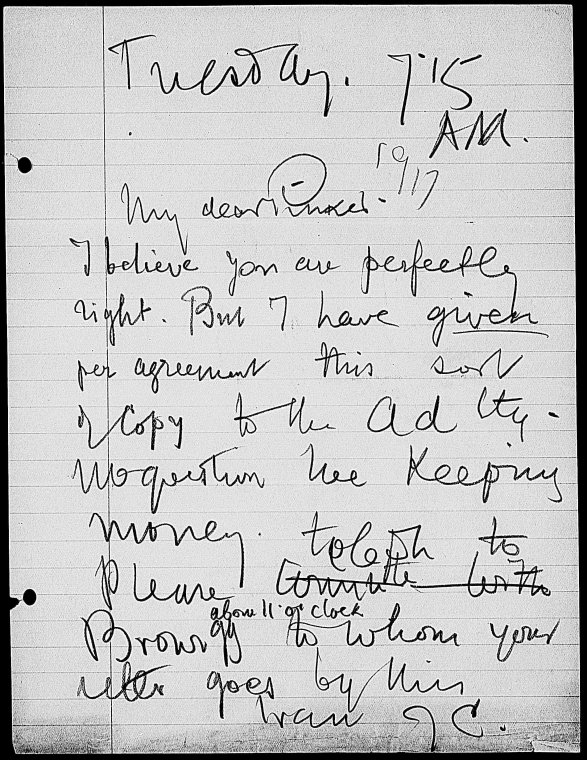 Tuesday. 7.15
AM.
My dear Pinker.
I believe you are perfectly
right. But I have given
per agreement this sort
of Copy to the Adlty.
No question here Keeping
money. teleph to
Please
about 11 o'clock
to whom your
letter goes by this
train JC.